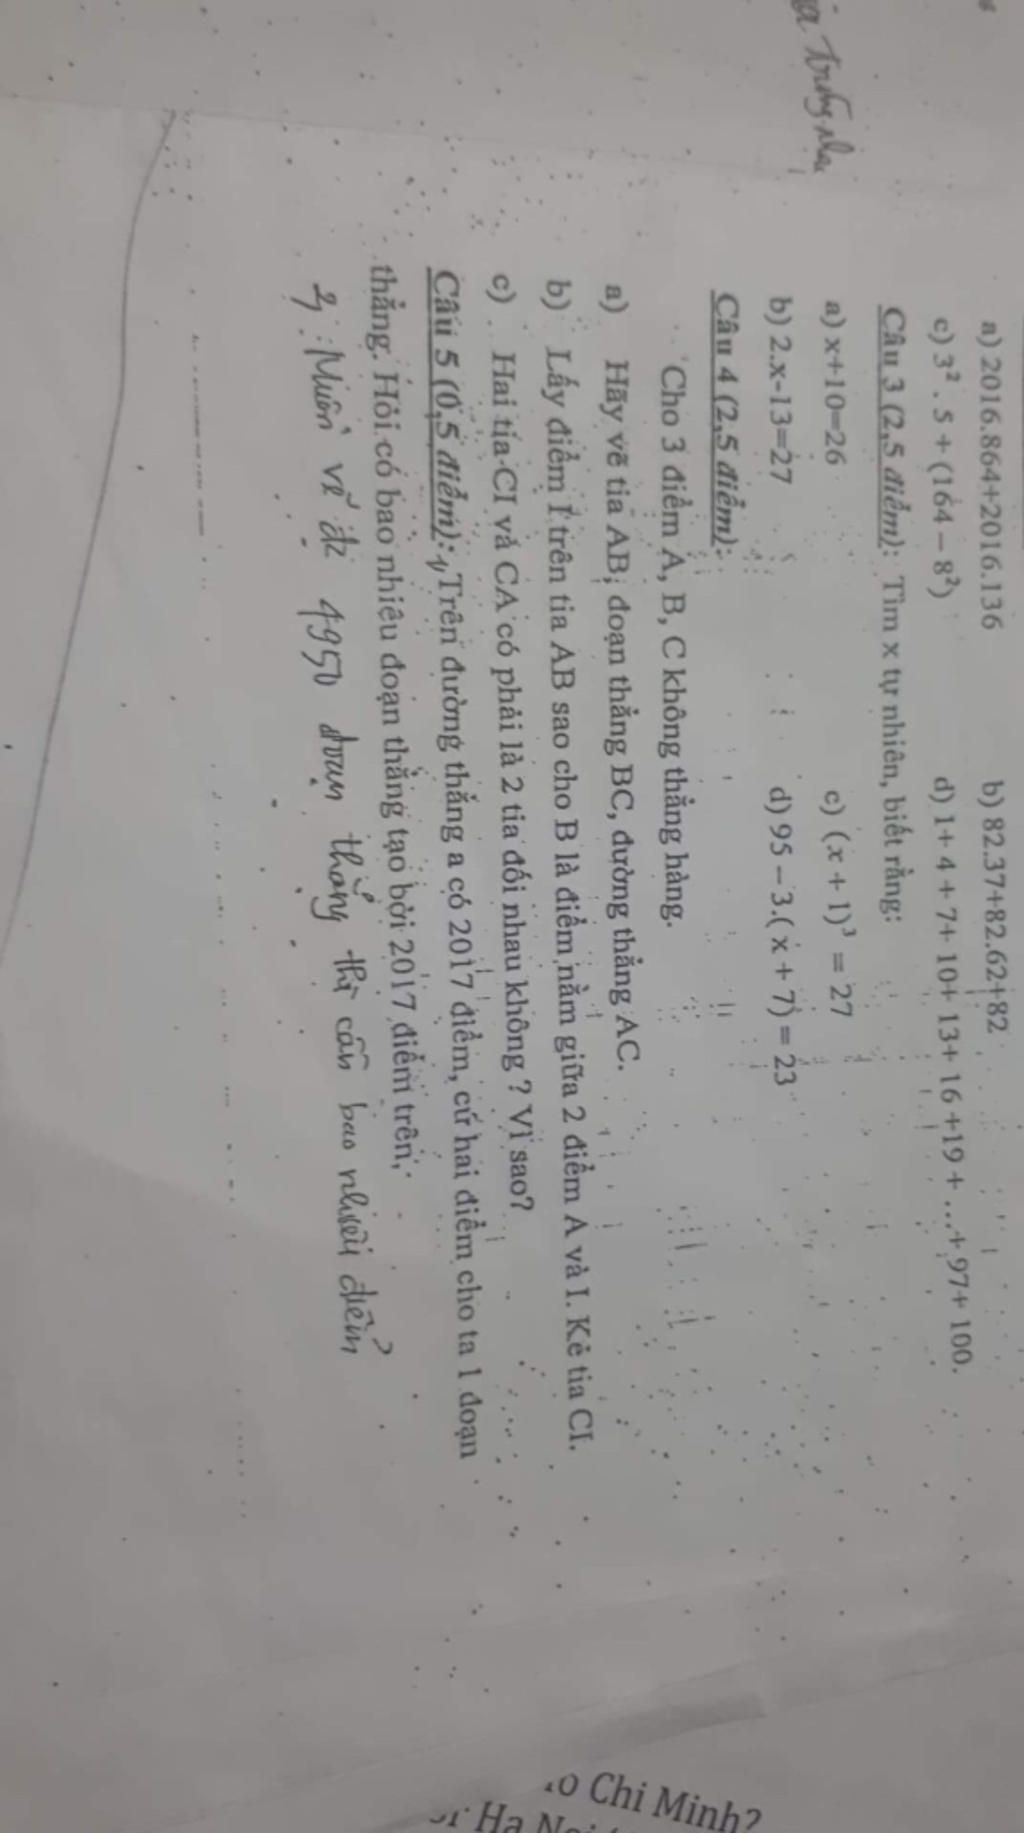 a) 2016.864+2016.136 b) 82.37+82.62+82
c) 3² . 5 + (164 – 8²) d) 1+ 4 + 7+ 10+ 13+ 16 +19 + ...+ 97+ 100.
Câu 3 (2,5 điểm): Tìm x tự nhiên, biết rằng:
a) x+10=26 c) (x + 1)³ = 27
b) 2.x-13=27 d) 95 – 3.( x + 7) = 23
Câu 4 (2,5 điểm):
Cho 3 điểm A, B, C không thẳng hàng.
a) Hãy vẽ tia AB; đoạn thẳng BC, đường thẳng AC.
b) Lấy điểm I trên tia AB sao cho B là điểm nằm giữa 2 điểm A và I. Kẻ tia CI.
c) Hai tia CI và CA có phải là 2 tia đối nhau không ? Vì sao?
Câu 5 (0,5 điểm): 1, Trên đường thẳng a có 2017 điểm, cứ hai điểm cho ta 1 đoạn
thẳng. Hỏi có bao nhiêu đoạn thẳng tạo bởi 2017 điểm trên.
2, Muốn vẽ đc 4950 đoạn thẳng thì cần bao nhiêu điểm
o Chi Minh?
Ha